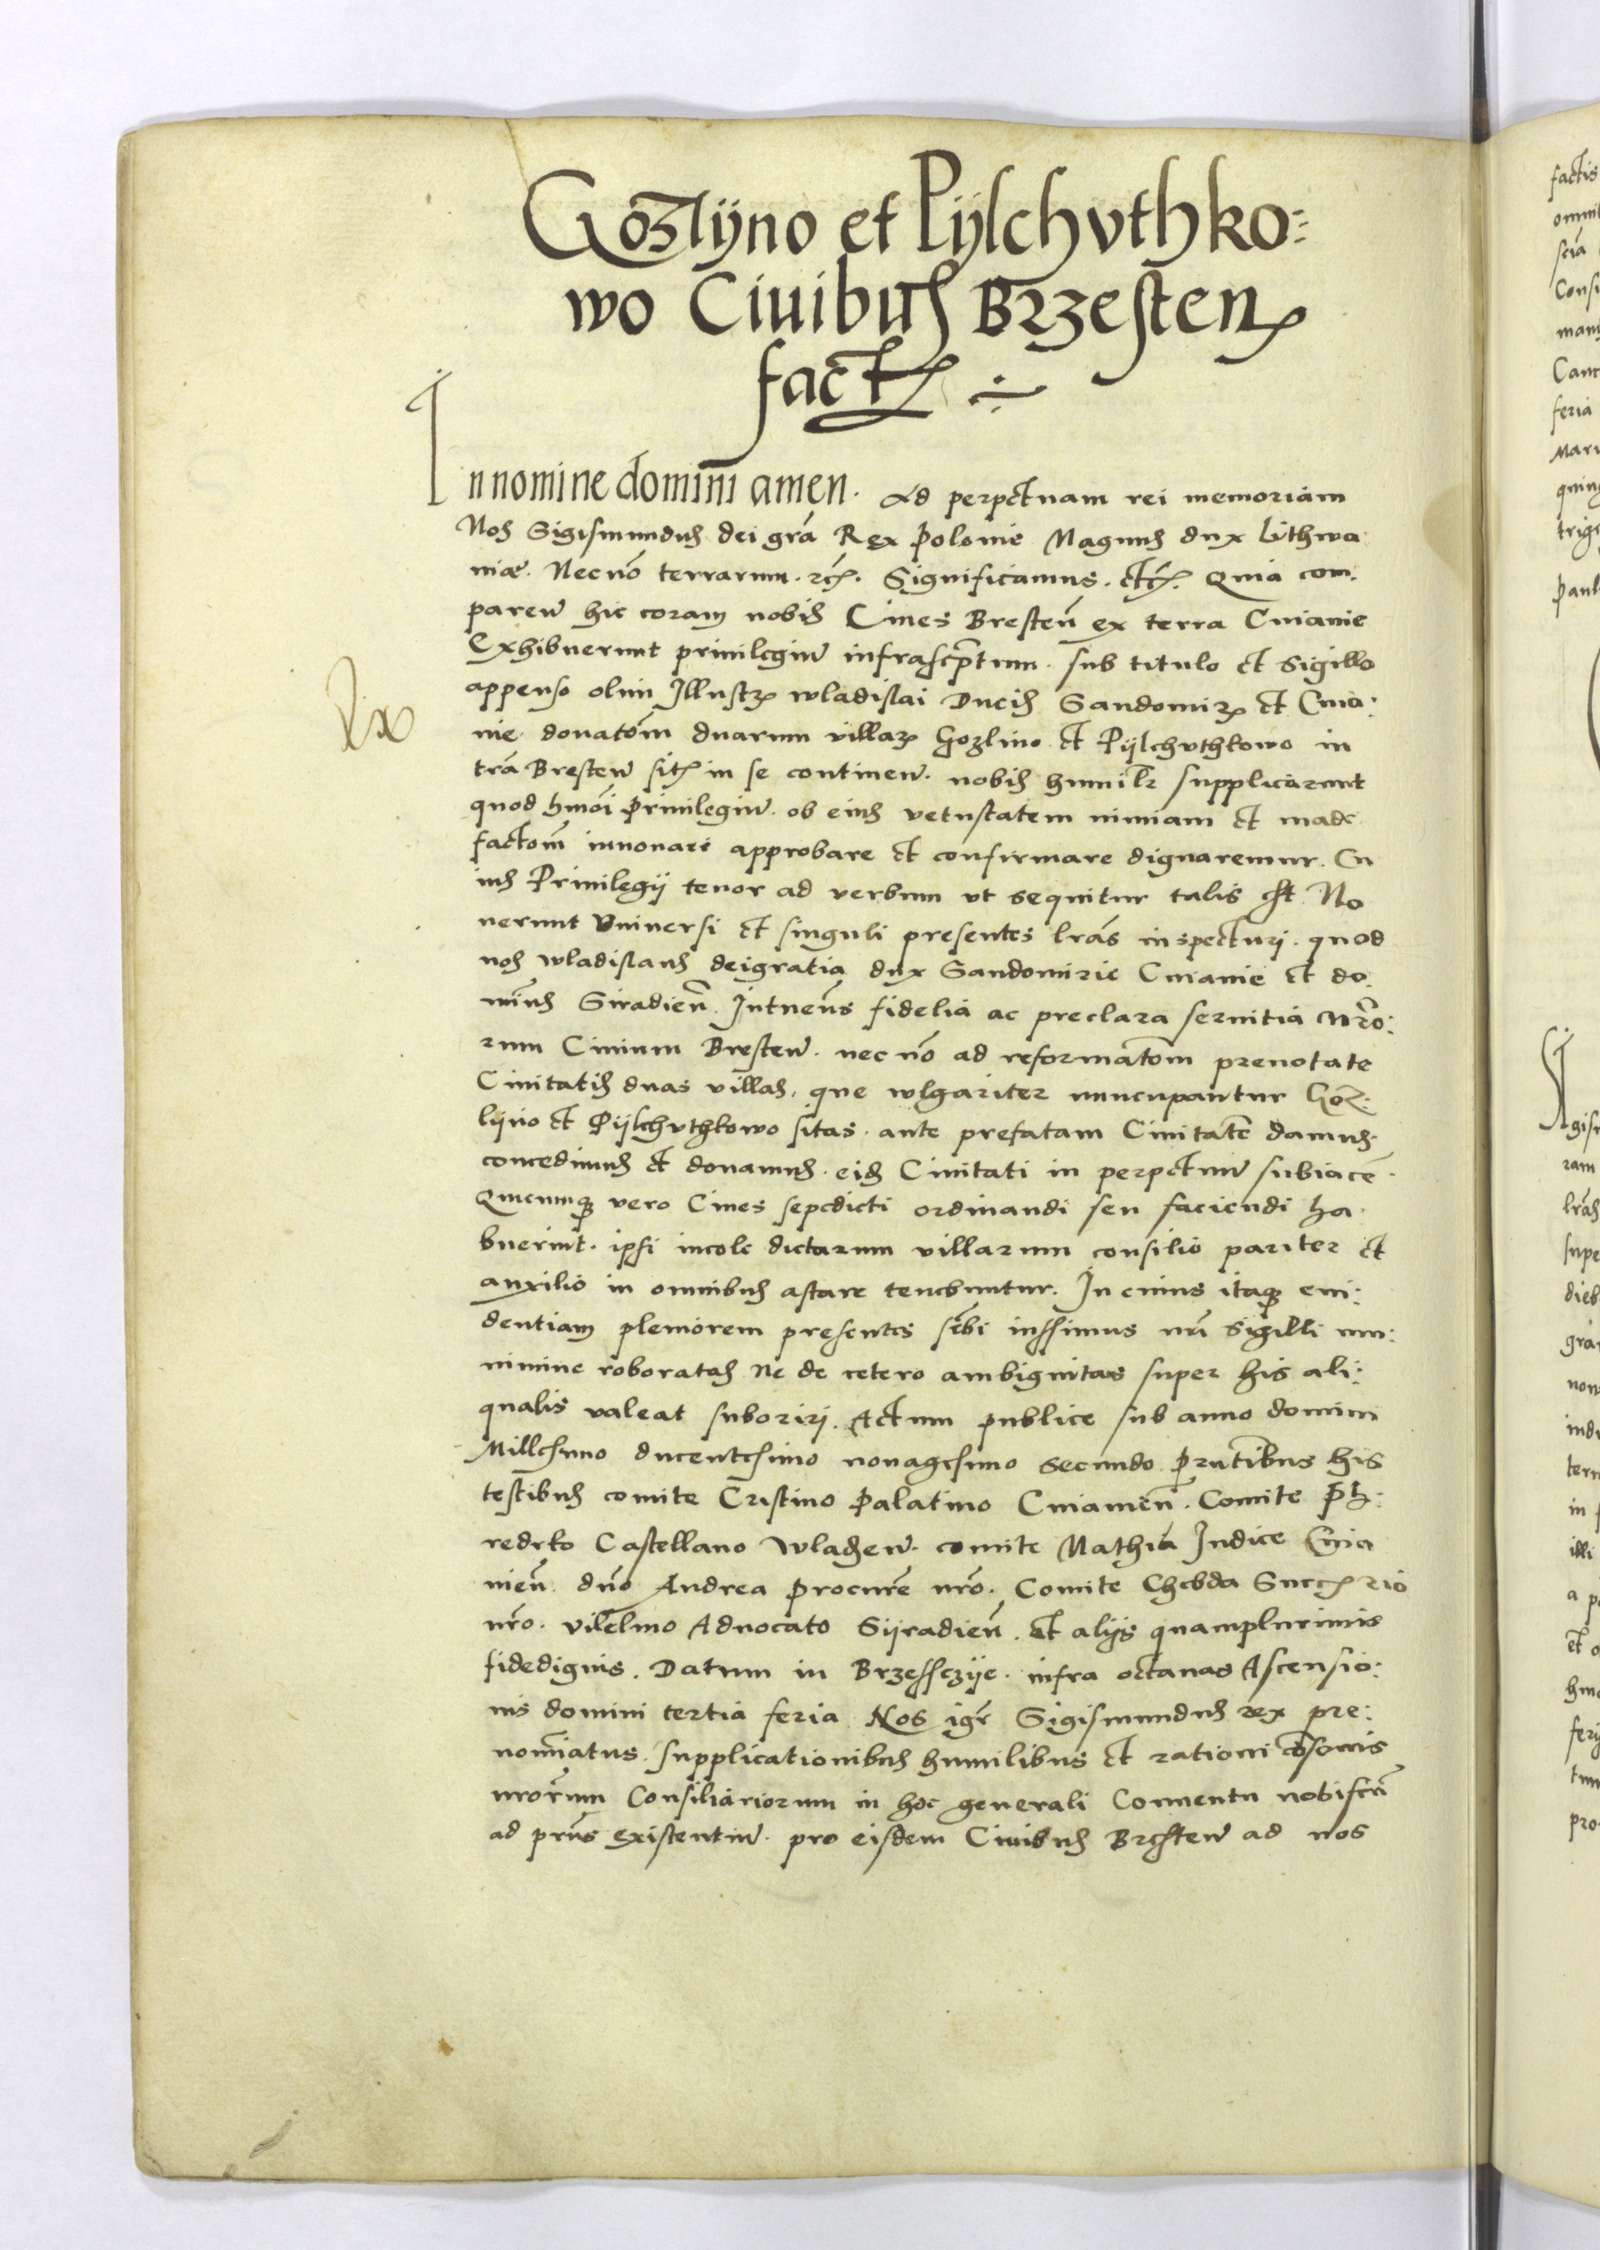 Gozlÿno et Pÿlchvthko:
wo Ciuibus Brzesten
fact
In nomine domini amen. Ad perpetuam rei memoriam
Nos Sigismundus dei gra Rex Polonie Magnus dux Lithwa
niæ. Necno terrarum. etc. Significamus. etc. Quia com
paren hic coram nobis Ciues Bresten ex terra Cuiauie
Exhibuerunt priuilegium infrascptum. sub titulo et sigillo
appenso olim Illustr wladislai Ducis Sandomir et Cuia:
uie donatom duarum villar Gozlino et Pÿlchvthkowo in
tra Bresten sit in se continen. nobis humilr supplicarunt
quod hmoi priuilegium ob eius vetustatem nimiam et made
factom innouare approbare et confirmare dignaremur. Cu
ius Priuilegij tenor ad verbum vt sequitur talis est No
uerunt Vniuersi et singuli presentes lras inspecturi. quod
nos wladislaus deigratia dux Sandomirie Cuiauie et do:
minus Siradien. Intuens fidelia ac preclara seruitia nro:
rum Ciuium Bresten. nec no ad reformatom prenotate
Ciuitatis duas villas. que wlgariter nuncupantur Goz:
lÿno et Pÿlchvthkowo sitas. ante prefatam Ciuitate damus.
concedimus et donamus. eid Ciuitati in perpetuum subiace.
Quicumq vero Ciues sepedicti ordinandi seu faciendi ha
buerint. ipsi incole dictarum villarum consilio pariter et
auxilio in omnibus astare tenebuntur. In cuius itaq eui:
dentiam pleniorem presentes scbi iussimus nri sigilli mu:
nimine roboratas Ne de cetero ambiguitas super his ali:
qualis valeat suboriri. Actum publice sub anno domini
Millesimo ducentesimo nonagesimo secundo prntibus his
testibus comite Cristino Palatino Cuiauien. Comite
redrko Castellano wladien. comite Mathia Iudice Cuia
uien. dno Andrea procure nro. Comite Chebda rio
nro. vilelmo Aduocato Sÿradien. et alijs quamplurimis
fidedignis. Datum in Brzessczÿe. infra octauas Ascensio:
nis domini tertia feria Nos igr Sigismundus rex pre:
nominatus. supplicationibus humilibus et rationi cosonis
nrorum Consiliariorum in hoc generali Conuentu nobiscu
ad prns existentium. pro eisdem Ciuibus Bresten ad nos